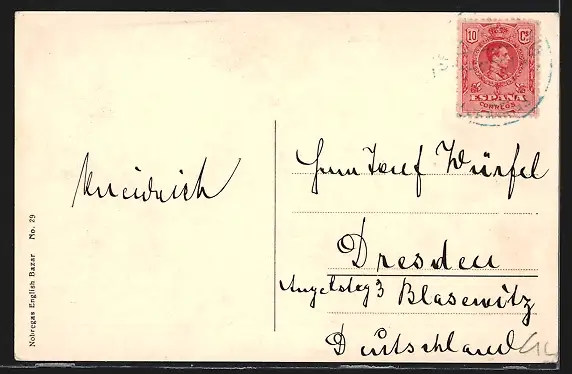 10 Cs
ESPAÑA
CORREOS
Herrn Josef Würfel
Dresden
3 Blasewitz
Deutschland
Nobregas English Bazar No. 29